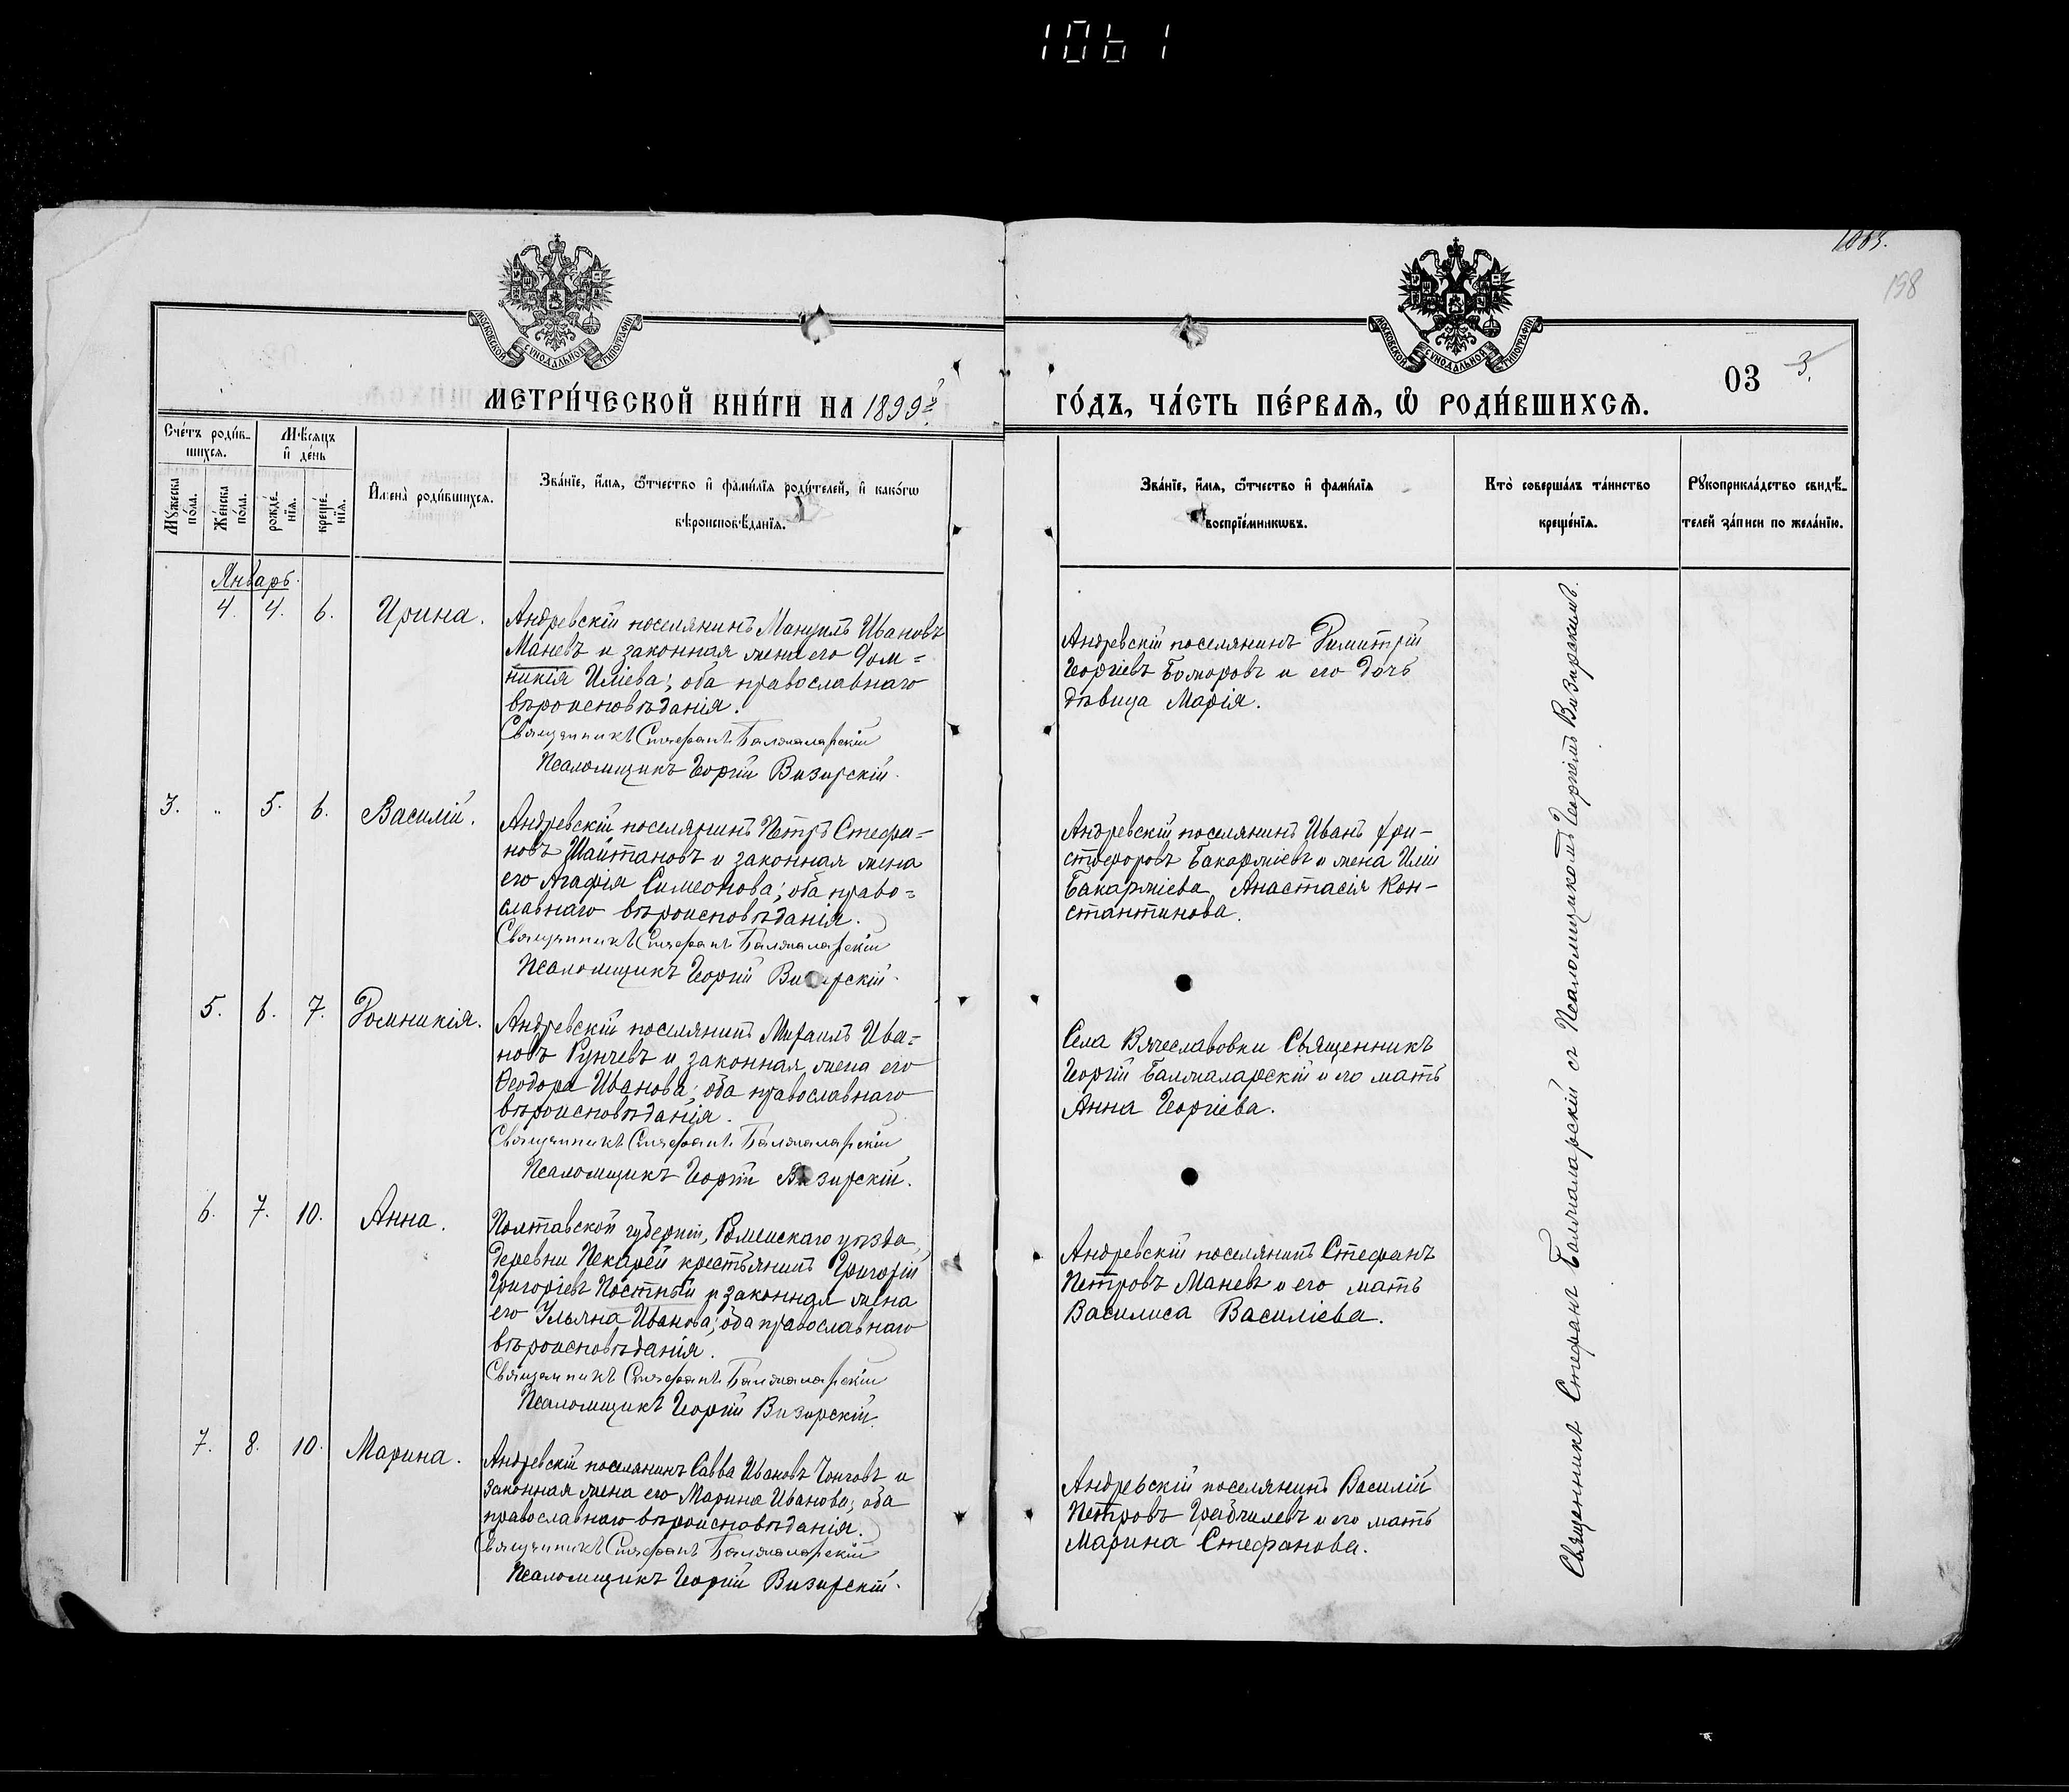 1061
1063.
158
МОСКОВСКОЙ СѴНОДАЛЬНОЙ ТИПОГРАФІИ
МОСКОВСКОЙ СѴНОДАЛЬНОЙ ТИПОГРАФІИ
03 3.
МЕТРИ́ЧЕСКОЙ КНИ́ГИ НА 1899 г. ГО́ДЪ, ЧА́СТЬ ПЕ́РВАѦ, Ѡ҆ РОДИ́ВШИХСѦ.
Сче́тъ роди́в-
шихсѧ.
Мѣ́сѧцъ
и҆ де́нь
Мꙋ́жеска по́ла.
Же́нска по́ла.
рожде́-нїѧ.
креще́-нїѧ.
И҆мена̀ роди́вшихсѧ.
Зва́нїе, и҆́мѧ, ѻ҆́тчество и҆ фами́лїѧ роди́телей, и҆ како́гѡ
вѣроисповѣ́данїѧ.
Зва́нїе, и҆́мѧ, ѻ҆́тчество и҆ фами́лїѧ
воспрїе́мникѡвъ.
Кто̀ соверша́лъ та́инство
креще́нїѧ.
Рꙋкоприкла́дство свидѣ́-
телей за́писи по жела́нїю.
Январь.
4. 4. 6. Ирина.
Андревскій поселянинъ Мануилъ Ивановъ
Маневъ и законная жена его Дом=
никія Иліева; оба православнаго
вѣроисповѣданія.
Священникъ Стефанъ Балжаларскій
Псаломщикъ Георгій Визирскій.
Андревскій поселянинъ Димитрій
Георгіевъ Боморовъ и его дочь
дѣвица Марія.
3. „ 5. 6. Василій.
Андревскій поселянинъ Петръ Стефа=
новъ Шайтановъ и законная жена
его Агафія Симеонова; оба право=
славнаго вѣроисповѣданія.
Священникъ Стефанъ Балжаларскій
Псаломщикъ Георгій Визирскій.
Андревскій поселянинъ Иванъ Хри-
стофоровъ Бакаржіевъ и жена Иліи
Бакаржіева, Анастасія Кон-
стантинова.
5. 6. 7. Домникія.
Андревскій поселянинъ Михаилъ Ива=
новъ Рунчевъ и законная жена его
Ѳеодора Иванова; оба православнаго
вѣроисповѣданія.
Священникъ Стефанъ Балжаларскій
Псаломщикъ Георгій Визирскій.
Села Вячеславовки Священникъ
Георгій Балжаларскій и его мать
Анна Георгіева.
6. 7. 10. Анна.
Полтавской губерніи, Роменскаго уѣзда,
деревни Пекарей крестьянинъ Григорій
Григорьевъ Постный и законная жена
его Ульяна Иванова; оба православнаго
вѣроисповѣданія.
Священникъ Стефанъ Балжаларскій
Псаломщикъ Георгій Визирскій.
Андревскій поселянинъ Стефанъ
Петровъ Маневъ и его мать
Василиса Василіева.
7. 8. 10. Марина.
Андревскій поселянинъ Савва Ивановъ Чонговъ и
законная жена его Марина Иванова; оба
православнаго вѣроисповѣданія.
Священникъ Стефанъ Балжаларскій
Псаломщикъ Георгій Визирскій.
Андревскій поселянинъ Василій
Петровъ и его мать
Марина Стефанова.
Священникъ Стефанъ Балжаларскій съ Псаломщикомъ Георгіемъ Визирскимъ.